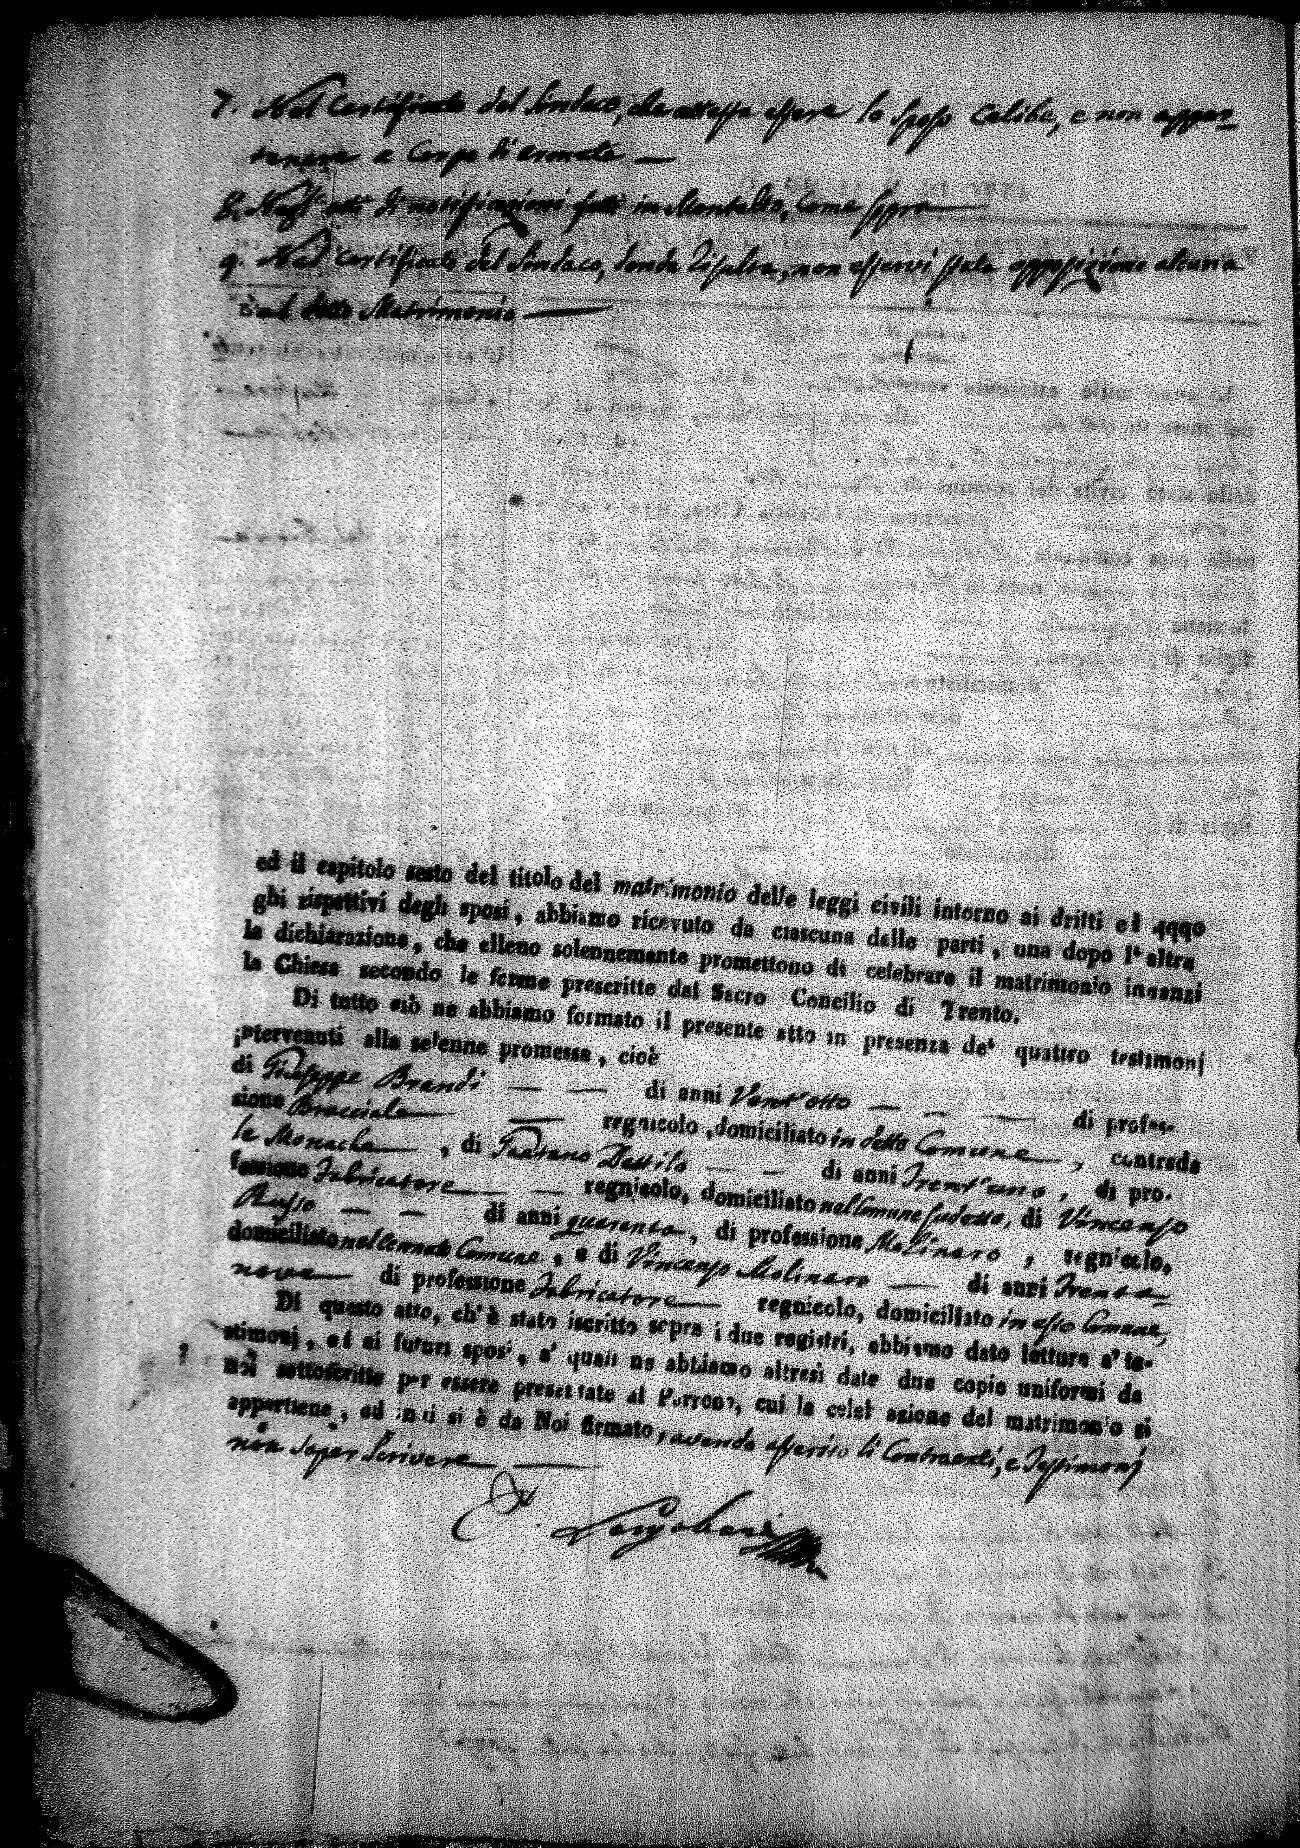 7. Nel Certificato del Sindaco, che attesta essere lo Sposo Celibe, e non appar-
tenere a Corpo d'armata —
8. Negl'atti di notificazioni fatti in Montalto, come sopra
9. Nel Certificato del Sindaco, donde risulta, non esservi stata opposizione alcuna
al detto Matrimonio —
ed il capitolo sesto del titolo del matrimonio delle leggi civili intorno ai dritti ed agli obbli-
ghi rispettivi degli sposi, abbiamo ricevuto da ciascuna delle parti, una dopo l'altra
la dichiarazione, che elleno solennemente promettono di celebrare il matrimonio innanzi
la Chiesa secondo le forme prescritte dal Sacro Concilio di Trento.
Di tutto ciò ne abbiamo formato il presente atto in presenza de' quattro testimonj
intervenuti alla solenne promessa, cioè
di Giuseppe Brandi — — di anni Vent'otto — — — di profes-
sione Bracciale — — regnicolo, domiciliato in detto Comune —, contrada
le Monache —, di Gaetano Dattilo — — di anni Trent'uno, di pro-
fessione Fabricatore — — regnicolo, domiciliato nel Comune sudetto, di Vincenzo
Russo — — di anni quaranta, di professione Molinaro, regnicolo,
domiciliato nel Comune, e di Vincenzo Molinaro — di anni Trenta-
nove — di professione Fabricatore — regnicolo, domiciliato in esso Comune,
Di questo atto, ch'è stato iscritto sopra i due registri, abbiamo dato lettura a' te-
stimonj, ed ai futuri sposi, a' quali ne abbiamo altresì date due copie uniformi da
noi sottoscritte per essere presentate al Parroco, cui la celebrazione del matrimonio si
appartiene, ed indi si è da Noi firmato, avendo asserito li Contraenti, e Testimonj
non saper scrivere —